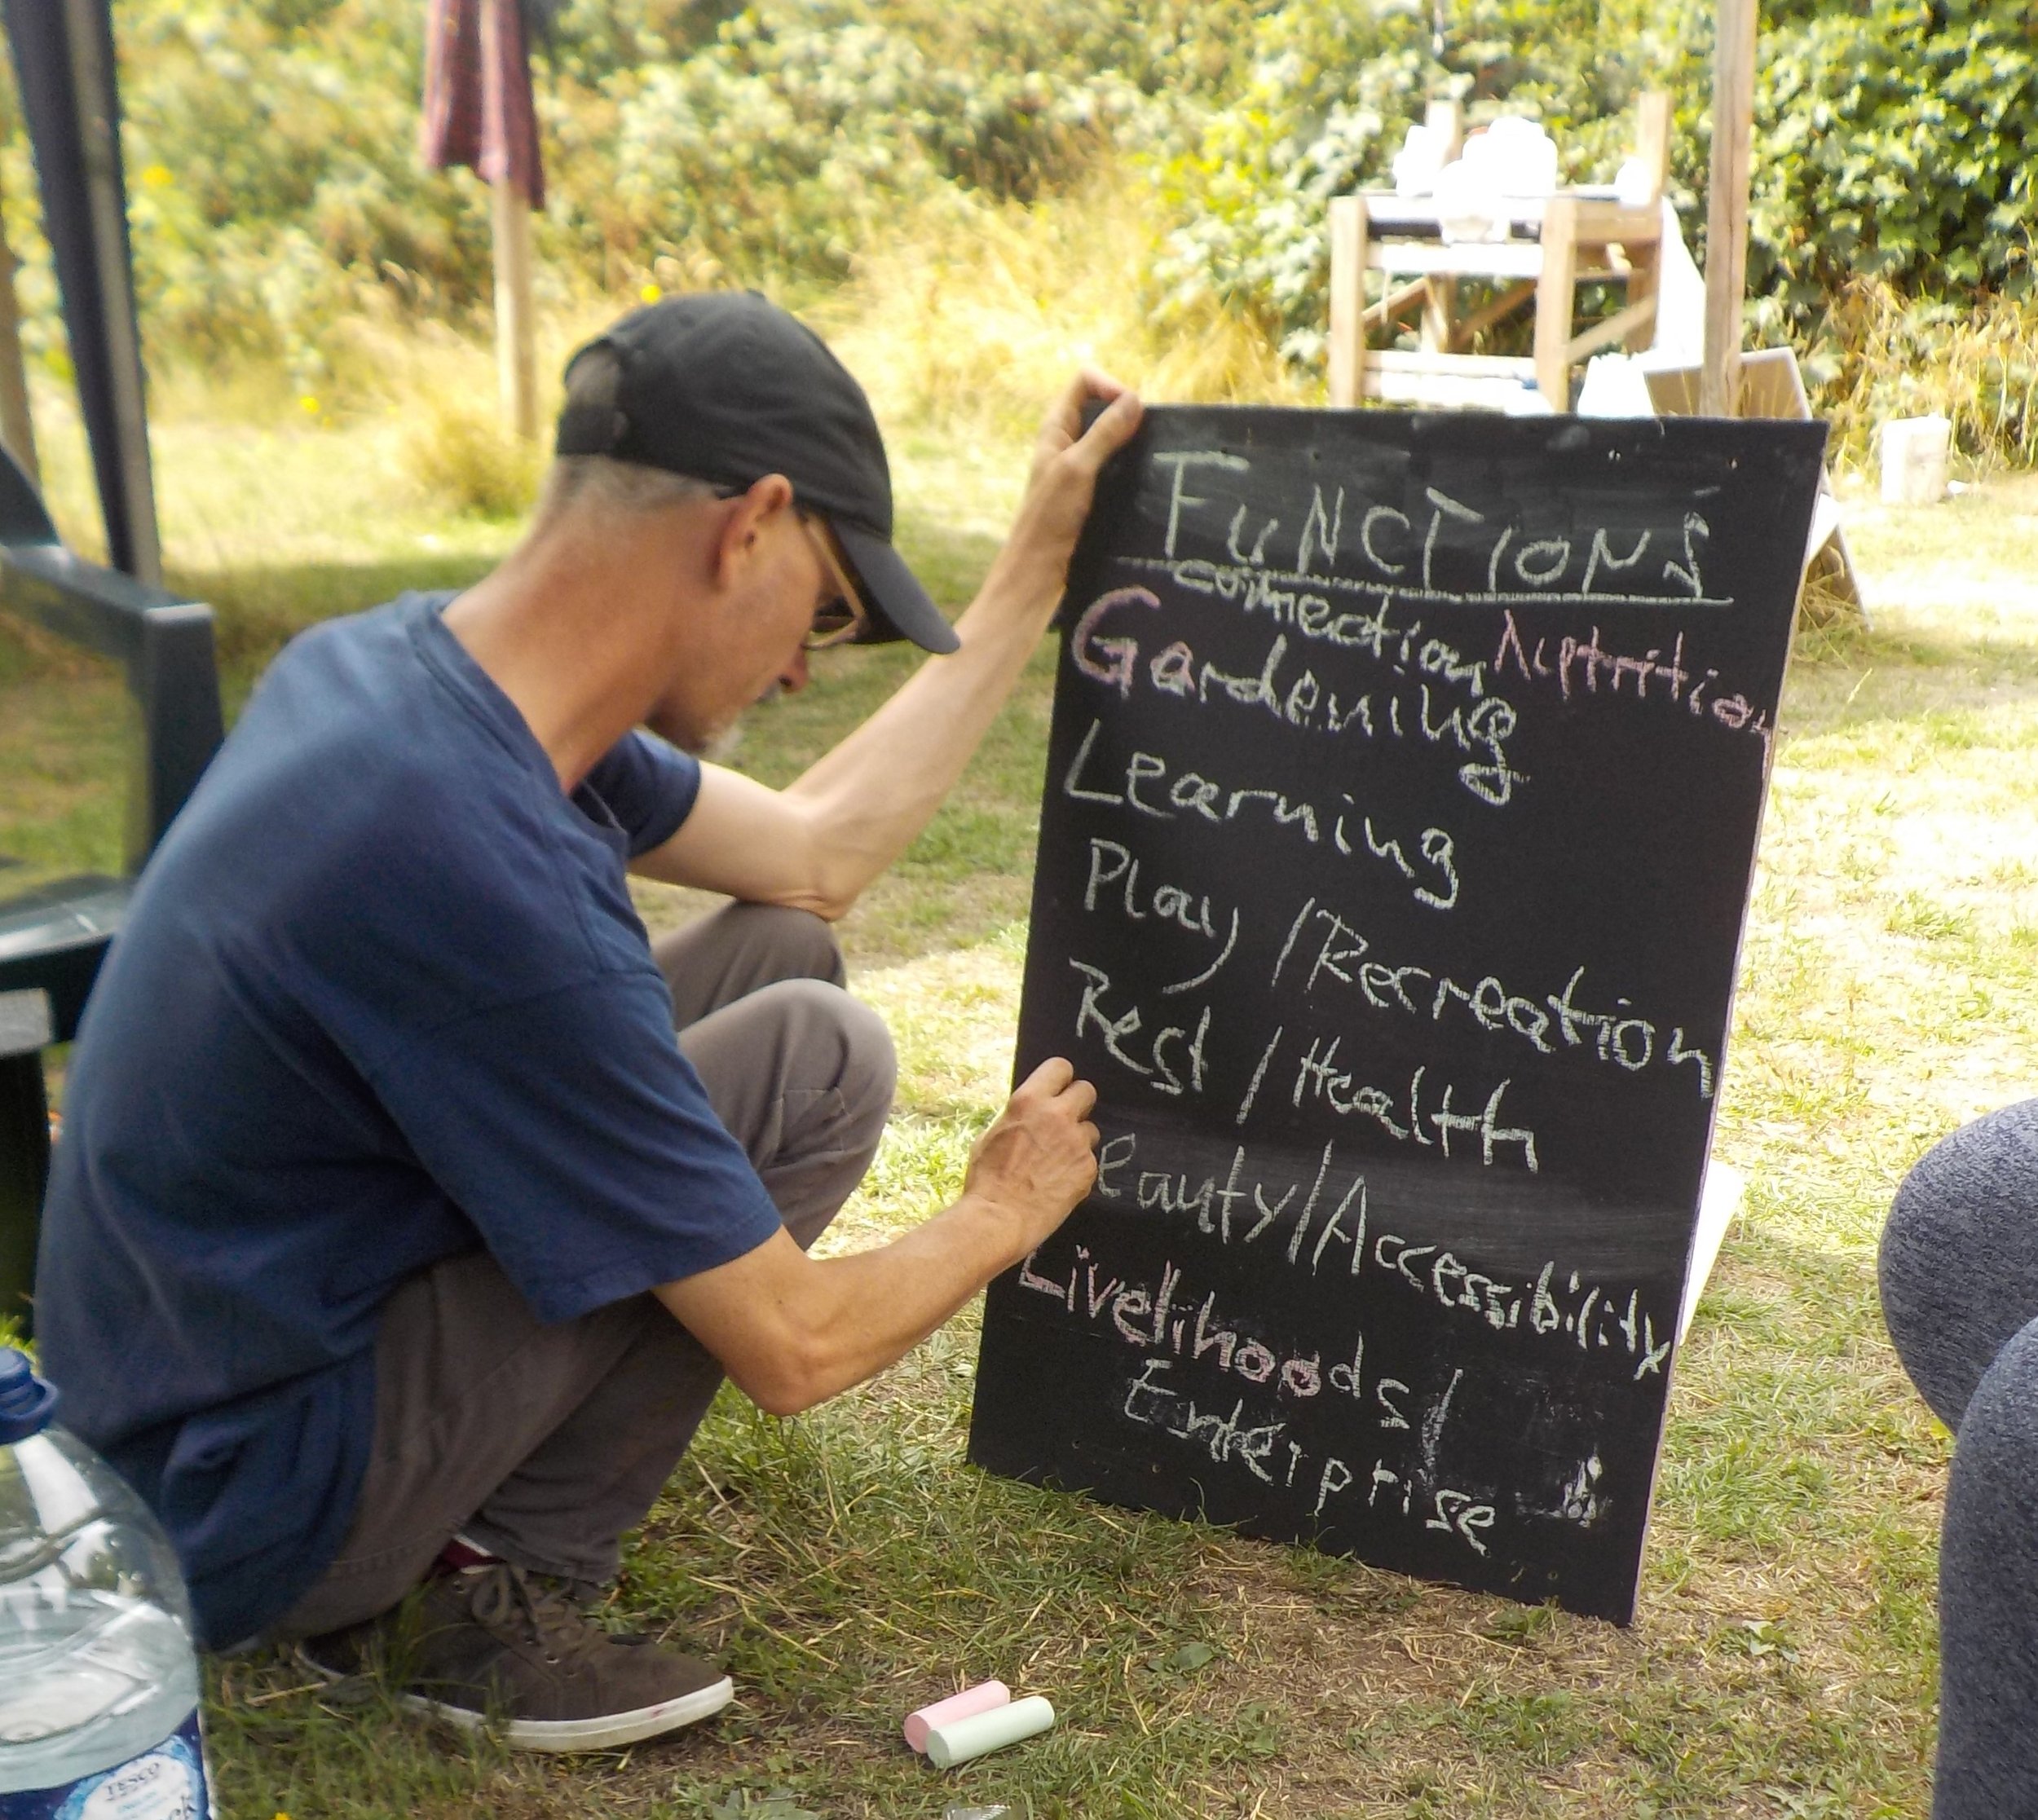 FUNCTIONS
connection Nutrition
Gardening
Learning
Play / Recreation
Rest / Health
eauty / Accessibility
Livelihoods /
Enterprise
TESCO